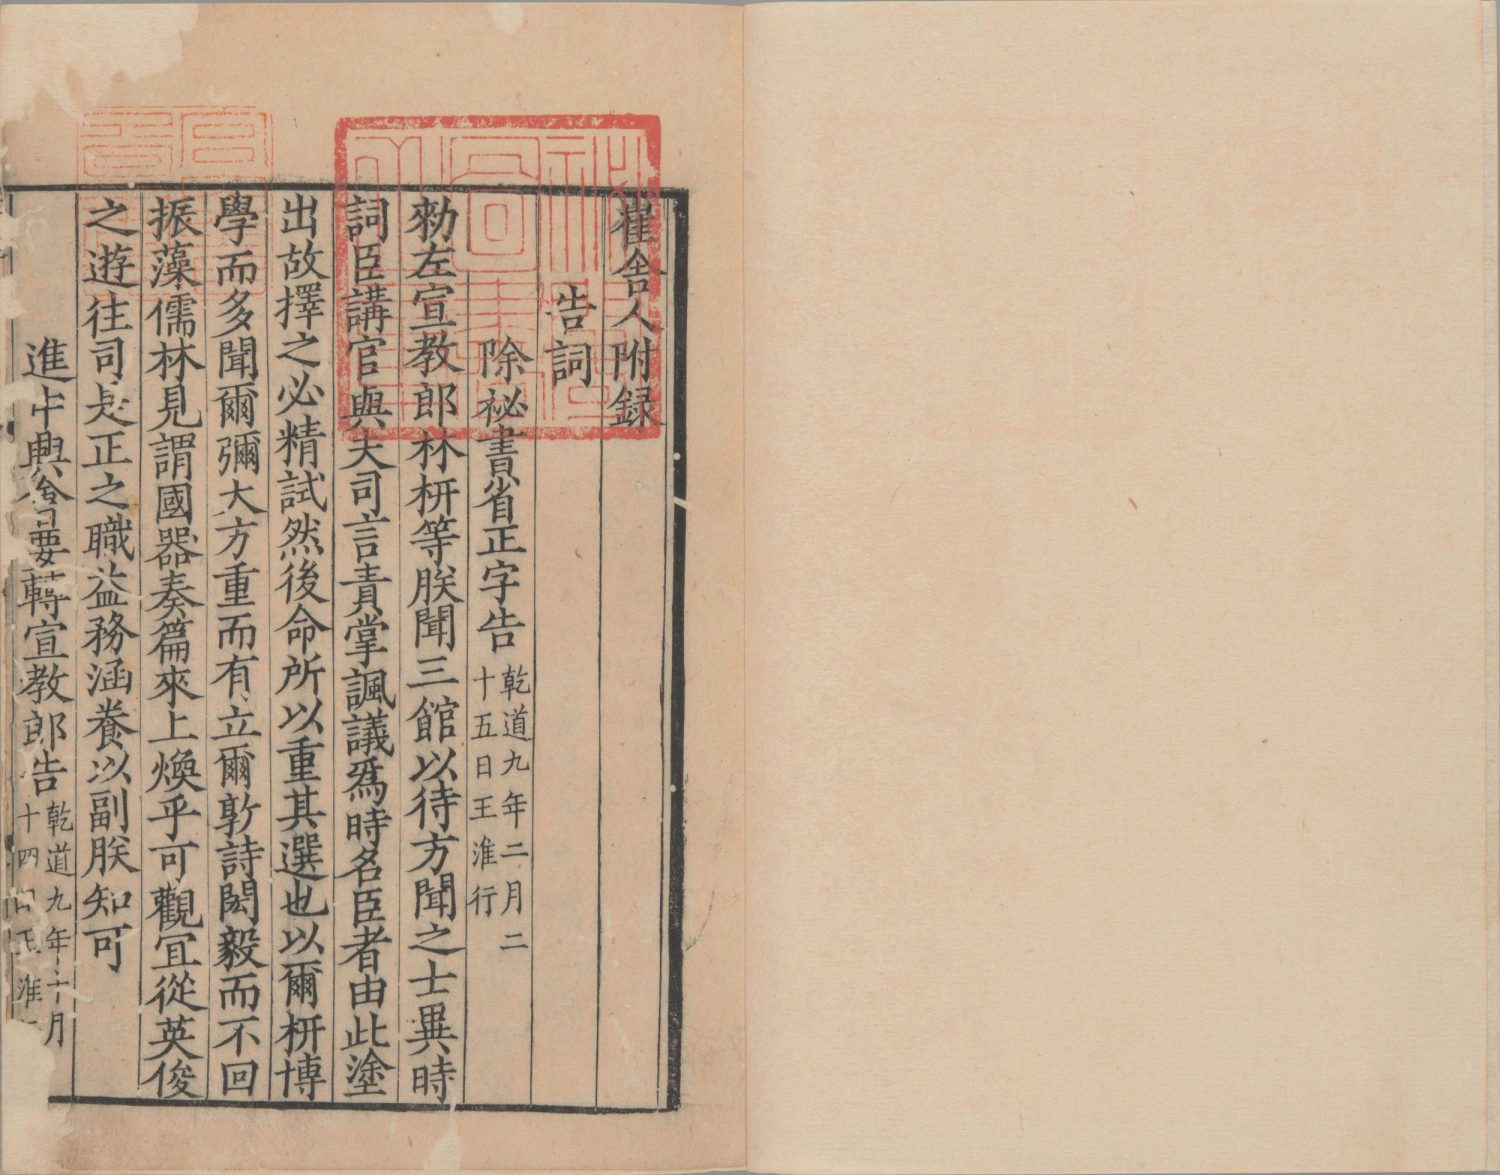 崔舍人附録
告詞
除祕書省正字告乾道九年二月二
十五日王淮行
勑左宣教郎林枅等朕聞三館以待方聞之士異時
詞臣講官與夫司言責掌諷議爲時名臣者由此塗
出故擇之必精試然後命所以重其選也以爾枅博
學而多聞爾彌大方重而有立爾敦詩閎毅而不回
振藻儒林見謂國器奏篇來上煥乎可觀宜從英俊
之遊往司是正之職益務涵養以副朕知可
進中興會要轉宣教郎告乾道九年十月
十四日王淮